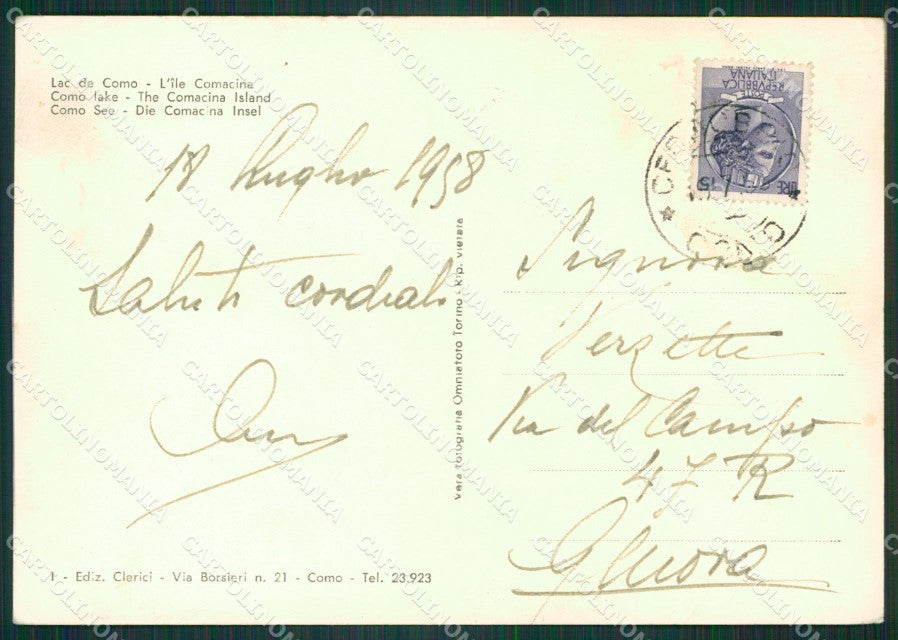 Lac de Como - L'île Comacina
Como lake - The Comacina Island
Como See - Die Comacina Insel
18 Luglio 1958
Saluti cordiali
Vera fotografia Omniafoto Torino - Rip. vietata
REPVBBLICA
ITALIANA
LIRE 15
COMO
Signora
Verzette
Via del Campo
47 R
Genova
1 - Ediz. Clerici - Via Borsieri n. 21 - Como - Tel. 23.923
CARTOLINOMANIA